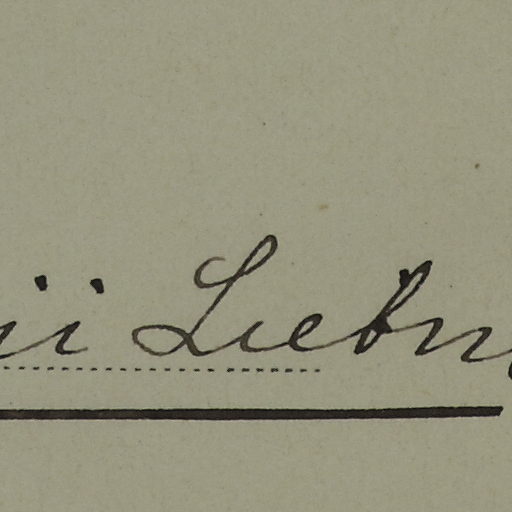 ii Liebn